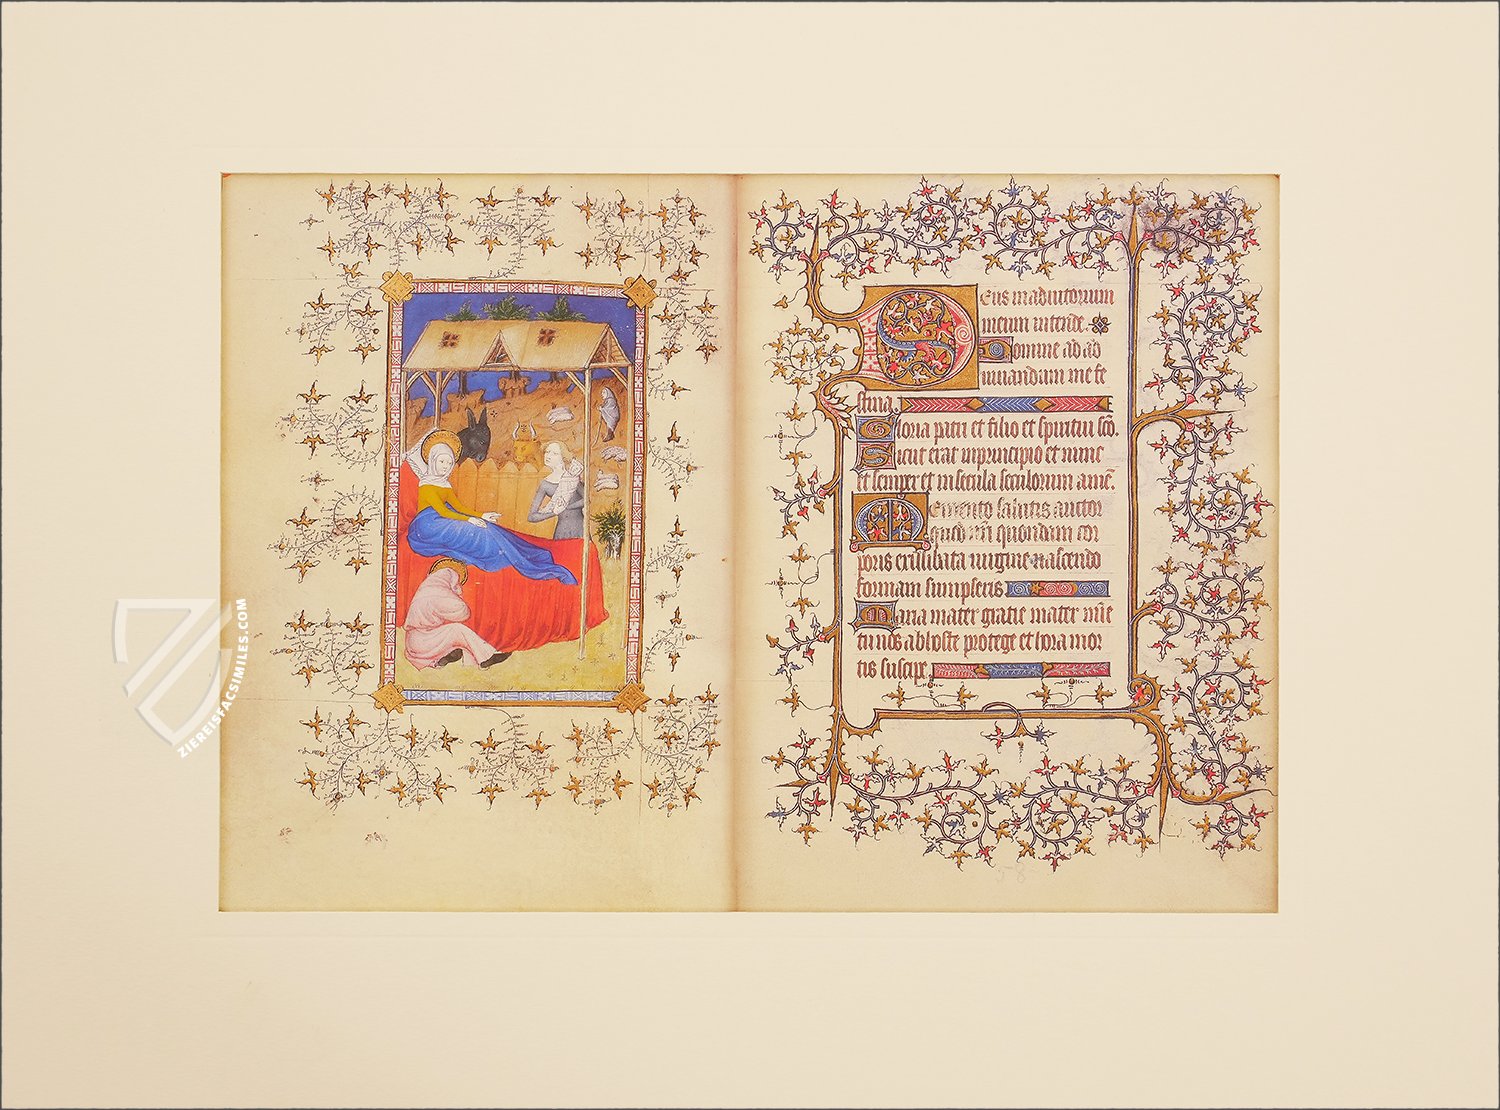 Deus in adiutorium
meum intende.
Domine ad ad
iuuandum me fe
stina.
Gloria patri et filio et spiritui sco.
Sicut erat inprincipio et nunc
et semper et insecula seculorum amē.
Memento salutis auctor
quod nri quondam cor
poris exillibata uirgine nascendo
formam sumpseris
Maria mater gratie mater mie
tu nos abhoste protege et hora mor
tis suscipe.
ZIEREISFACSIMILES.COM